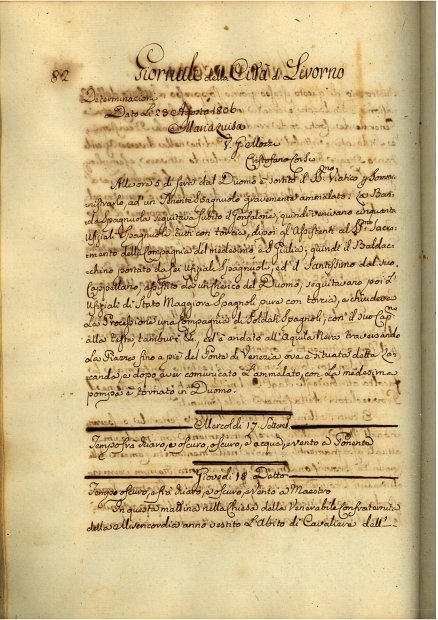 82 Giornale della Città di Livorno
Determinazioni
Dato Li 23 Agosto 1806
Maria Luisa
V. J. Pellozz
Cristofano Corsi
Alle ore 5 di sera dal Duomo è sortito il S.mo Viatico p Sommi-
nistrarlo, ad un Tenente Spagnuolo gravemente ammalato. La Ban-
da Spagnuola seguitava subito il Gonfalone, quindi venivano cinquanta
Ufiziali Spagnuoli tutti con torcia, dipoi gl'Assistenti al SS.mo Sacra-
mento della Compagnia del medesimo e Giulia, quindi il Baldac-
chino portato da sei Ufiziali Spagnuoli, ed il Santissimo dal suo
Cappellano, assistito da un Cherico del Duomo, seguitavano poi L'
Ufiziali di Stato Maggiore Spagnoli pure con torcia, e chiudeva
La Processione una Compagnia di Soldati Spagnoli, con il suo Cap.no
alla testa, tamburi &., ed è andato all'Aquila Nera traversando
La Piazza, fino a piè del Ponte di Venezia ove è situata detta Lo-
canda, e dopo aver comunicato L'ammalato, con La medesima
pompa è tornato in Duomo.
Mercoldì 17. Settemb.
Tempo fra chiaro, e oscuro, oscuro, e acqua, e vento a Ponente
Giovedì 18 Detto
Tempo oscuro, e fra chiaro, e oscuro, e vento a Maestro
In questa mattina nella Chiesa della Venerabile Confraternita
della Misericordia anno vestito L'Abito di Cavaliere dell'